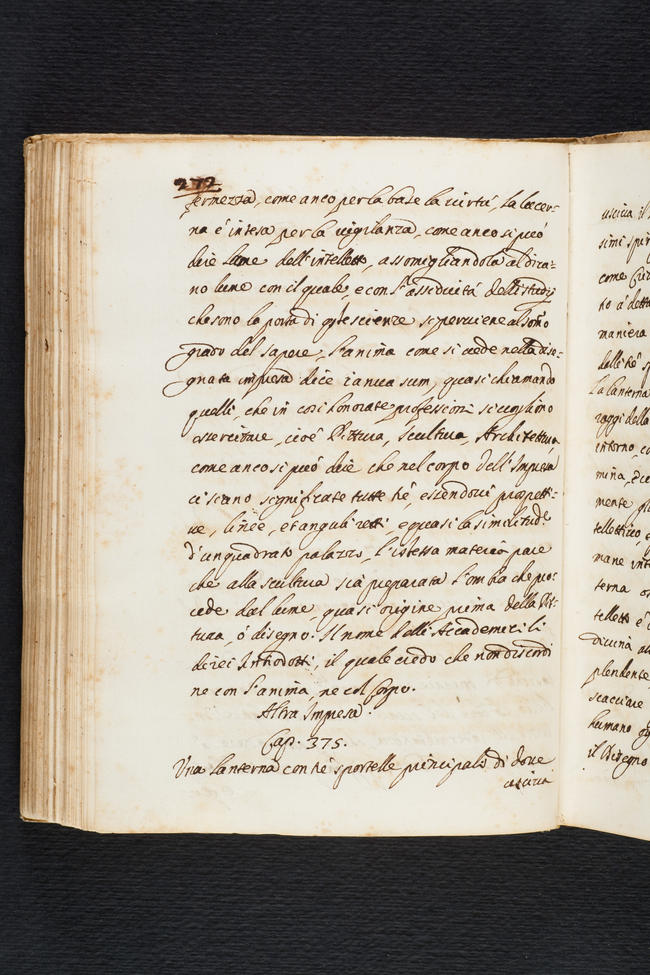 272
fermezza, come anco per la base la virtù, la lucer-
na è intesa per la vigilanza, come anco si può
dire lume dell'intelletto, assomigliandola al divi-
no lume con il quale, e con l'assiduità delli studij
che sono la porta di q̃lle scienze si perviene al som̃o
grado del sapere, l'anima come si vede nella dise-
gnata impresa dice ianua sum, quasi chiamando
quelli, che in cosi honorate professioni si vogliono
essercitare, cioè Pittura, Scultura, Architettura
come anco si può dire che nel corpo dell'Impresa
ci siano significate tutte trè, essendovi prospetti-
ve, linee, et anguli retti, e quasi la similitudi
d'un quadrato palazzo, l'istessa materia pare
che alla scultura sia preparata l'ombra che pro-
cede dal lume, quasi origine prima della Pit-
tura, ò disegno. Il nome delli Accademici li
direi Introdotti, il quale credo che non discordi
ne con l'anima, ne col Corpo.
Altra Impresa.
Cap. 375.
Una lanterna con trè sportelle principali di dove
usciva
usciva il
simi spir
come
to à detta
maniera
delle trè
La lanterna
raggi della
intorno, co
mina,
mente
tellettivo,
mane int
terna
telletto è
Divina
plendente
scacciare
humano
il Disegno